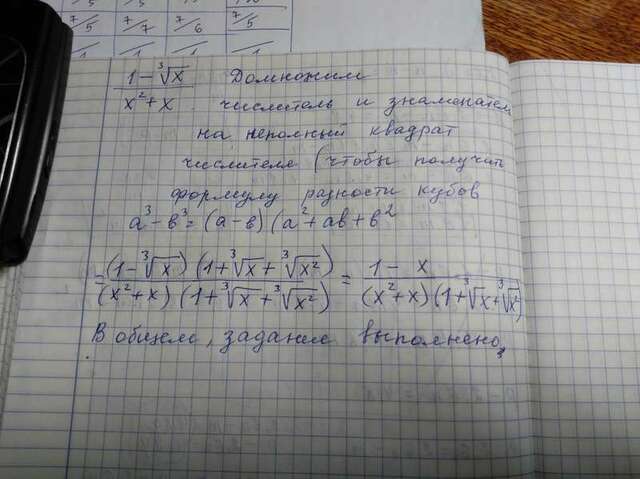 7/5 7/7 7/6 7/5
1-∛x / x²+x Домножим
числитель и знаменатель
на неполный квадрат
числителя (чтобы получить
формулу разности кубов
a³-в³=(a-в)(a²+ав+в²
=(1-∛x)(1+∛x+∛x²) / (x²+x)(1+∛x+∛x²) = 1-x / (x²+x)(1+∛x+∛x²)
В общем, задание выполнено,